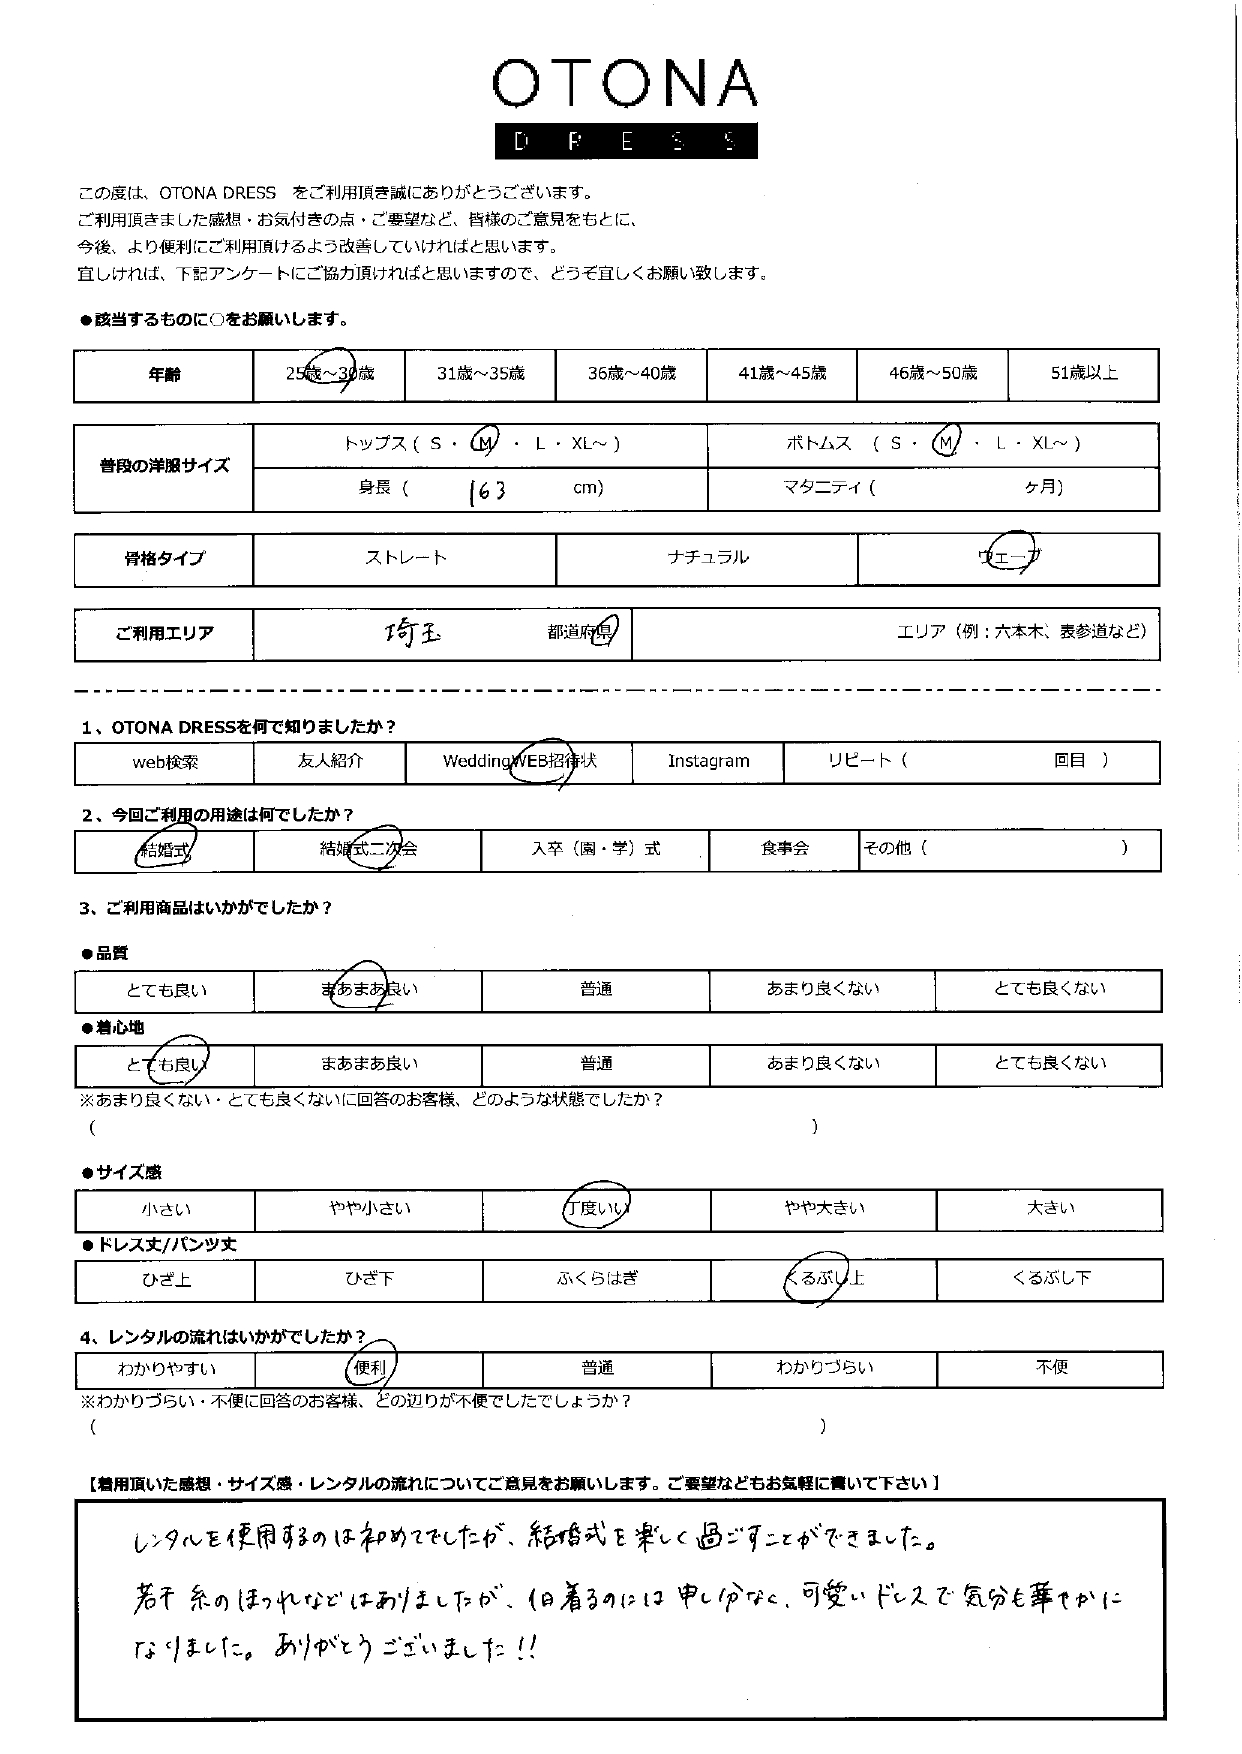 OTONA
DRESS
この度は、OTONA DRESS をご利用頂き誠にありがとうございます。
ご利用頂きました感想・お気付きの点・ご要望など、皆様のご意見をもとに、
今後、より便利にご利用頂けるよう改善していければと思います。
宜しければ、下記アンケートにご協力頂ければと思いますので、どうぞ宜しくお願い致します。
●該当するものに○をお願いします。
年齢 25歳～30歳 31歳～35歳 36歳～40歳 41歳～45歳 46歳～50歳 51歳以上
普段の洋服サイズ トップス ( S ・ M ・ L ・ XL～ ) ボトムス ( S ・ M ・ L ・ XL～ )
身長 ( 163 cm) マタニティ ( ヶ月)
骨格タイプ ストレート ナチュラル ウェーブ
ご利用エリア 埼玉 都道府県 エリア（例：六本木、表参道など）
1、OTONA DRESSを何で知りましたか？
web検索 友人紹介 WeddingWEB招待状 Instagram リピート ( 回目 )
2、今回ご利用の用途は何でしたか？
結婚式 結婚式二次会 入卒（園・学）式 食事会 その他 ( )
3、ご利用商品はいかがでしたか？
●品質
とても良い まあまあ良い 普通 あまり良くない とても良くない
●着心地
とても良い まあまあ良い 普通 あまり良くない とても良くない
※あまり良くない・とても良くないに回答のお客様、どのような状態でしたか？
( )
●サイズ感
小さい やや小さい 丁度いい やや大きい 大きい
●ドレス丈/パンツ丈
ひざ上 ひざ下 ふくらはぎ くるぶし上 くるぶし下
4、レンタルの流れはいかがでしたか？
わかりやすい 便利 普通 わかりづらい 不便
※わかりづらい・不便に回答のお客様、どの辺りが不便でしたでしょうか？
( )
【着用頂いた感想・サイズ感・レンタルの流れについてご意見をお願いします。ご要望などもお気軽に書いて下さい】
レンタルを使用するのは初めてでしたが、結婚式を楽しく過ごすことができました。
若干 糸のほつれなどはありましたが、1日着るのには申し分なく、可愛いドレスで気分も華やかに
なりました。ありがとうございました!!